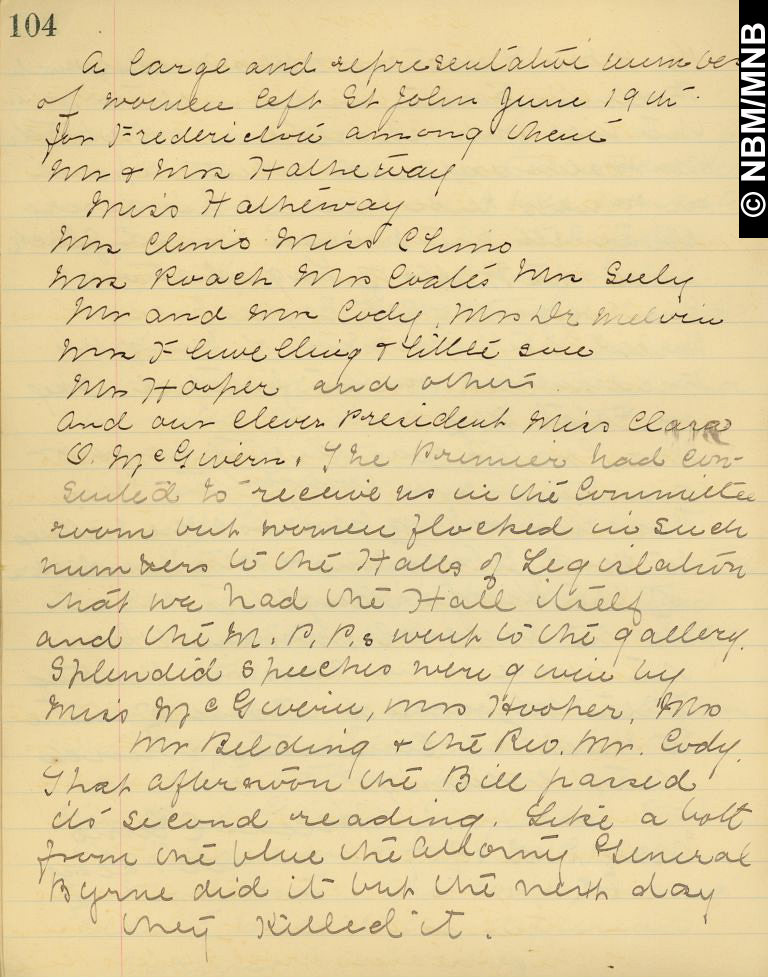 104
A large and representative number
of women left St John June 19th
for Fredericton among them
Mr & Mrs Hatheway
Miss Hatheway
Mrs Clinio Miss Clinio
Mrs Roach Mrs Coates Mrs Seely
Mr and Mrs Cody, Mrs Dr Melvin
Mrs Flewelling & little son
Mrs Hooper and others
And our clever President Miss Clara
O. McGivern. The Premier had con-
sented to receive us in the Committee
room but women flocked in such
numbers to the Halls of Legislation
that we had the Hall itself
and the M. P. P.s went to the gallery.
Splendid speeches were given by
Miss McGivern, Mrs Hooper, Mrs
Mr Belding & the Rev. Mr. Cody.
That afternoon the Bill passed
its second reading. Like a bolt
from the blue the Attorney General
Byrne did it but the next day
they killed it.
© NBM/MNB